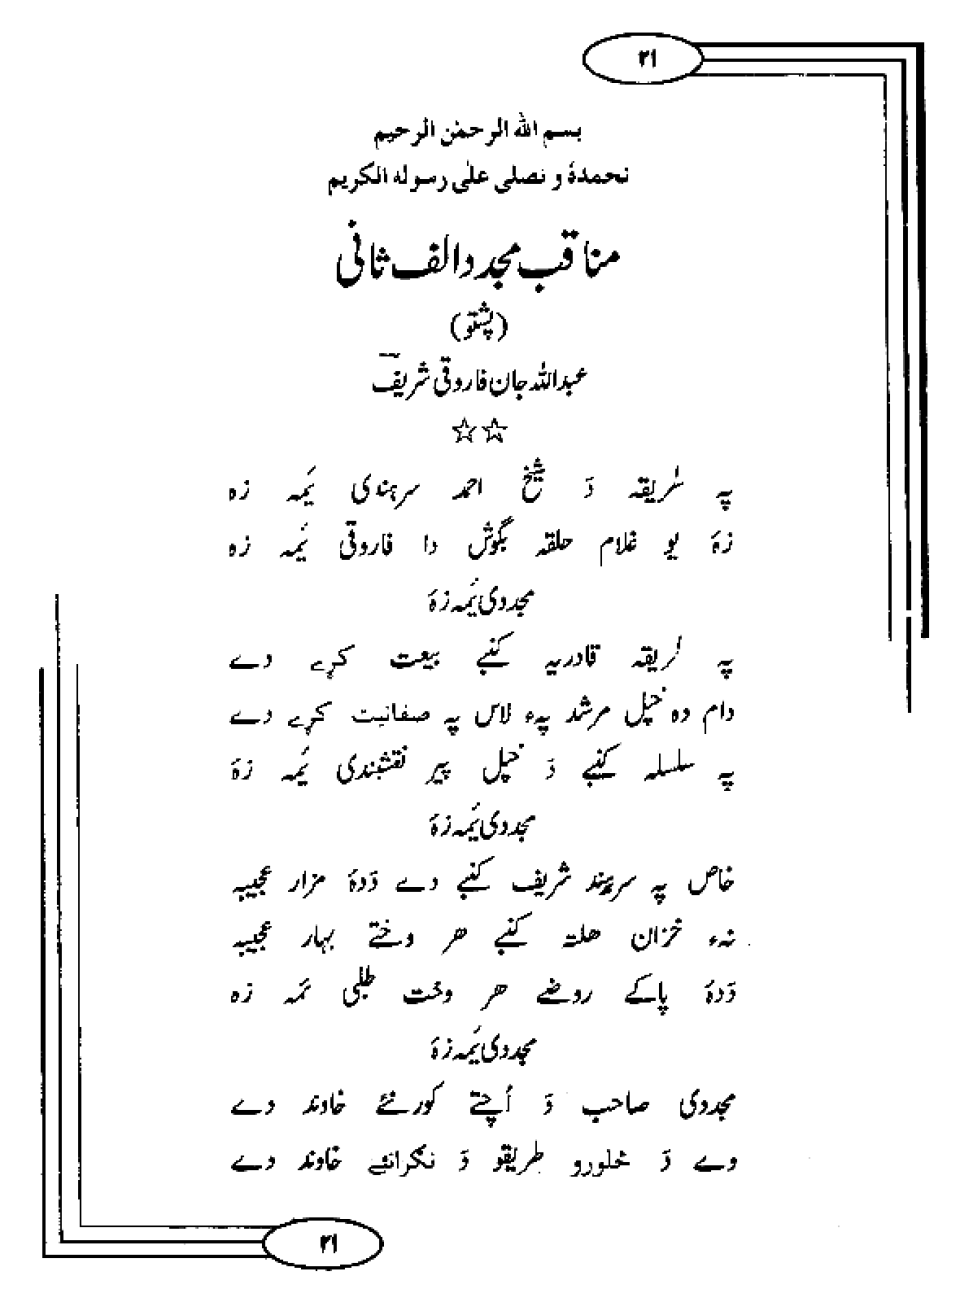 ۲۱
بسم اللہ الرحمٰن الرحیم
نحمدہٗ و نصلی علٰی رسولہ الکریم
مناقب مجدد الف ثانی
(پشتو)
عبداللہ جان فاروقی شریف
☆☆
پہ طریقہ دَ شیخ احمد سرہندی یَمہ زہ
زہَ یو غلام حلقہ بگوش دا فاروقی یَمہ زہ
مجددی یَمہ زہَ
پہ طریقہ قادریہ کنبے بیعت کرے دے
دام دہ خپل مرشد پہء لاس پہ صفائیت کرے دے
پہ سلسلہ کنبے دَ خپل پیر نقشبندی یَمہ زہَ
مجددی یَمہ زہَ
خاص پہ سرہند شریف کنبے دے دَدہٗ مزار عجیبہ
نہء خزان ھلتہ کنبے ھر وختے بہار عجیبہ
دَدہٗ پاکے روضے ھر وخت طلبی یَمہ زہ
مجددی یَمہ زہَ
مجددی صاحب دَ اُچتے کورنئے خاوند دے
وے دَ څلورو طریقو دَ نگرانئے خاوند دے
۲۱